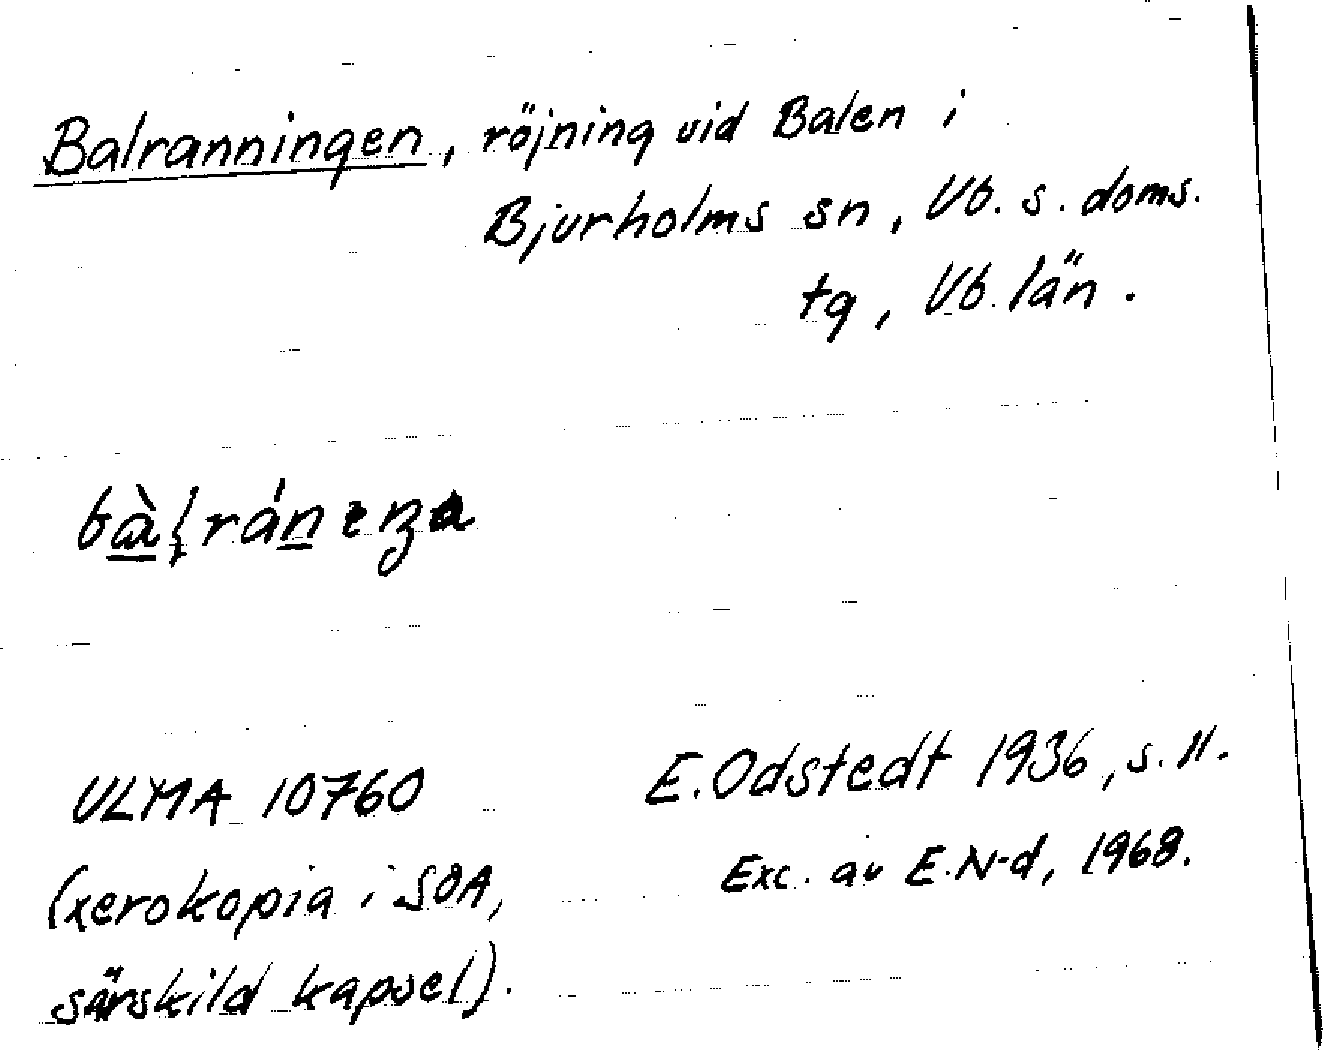 Balranningen, röjning vid Balen i
Bjurholms sn, Vb. s. doms.
tg, Vb. län.
ULMA 10760
E. Odstedt 1936, s. 11.
(xerokopia i SOA,
Exc. av E. N-d, 1968.
särskild kapsel).